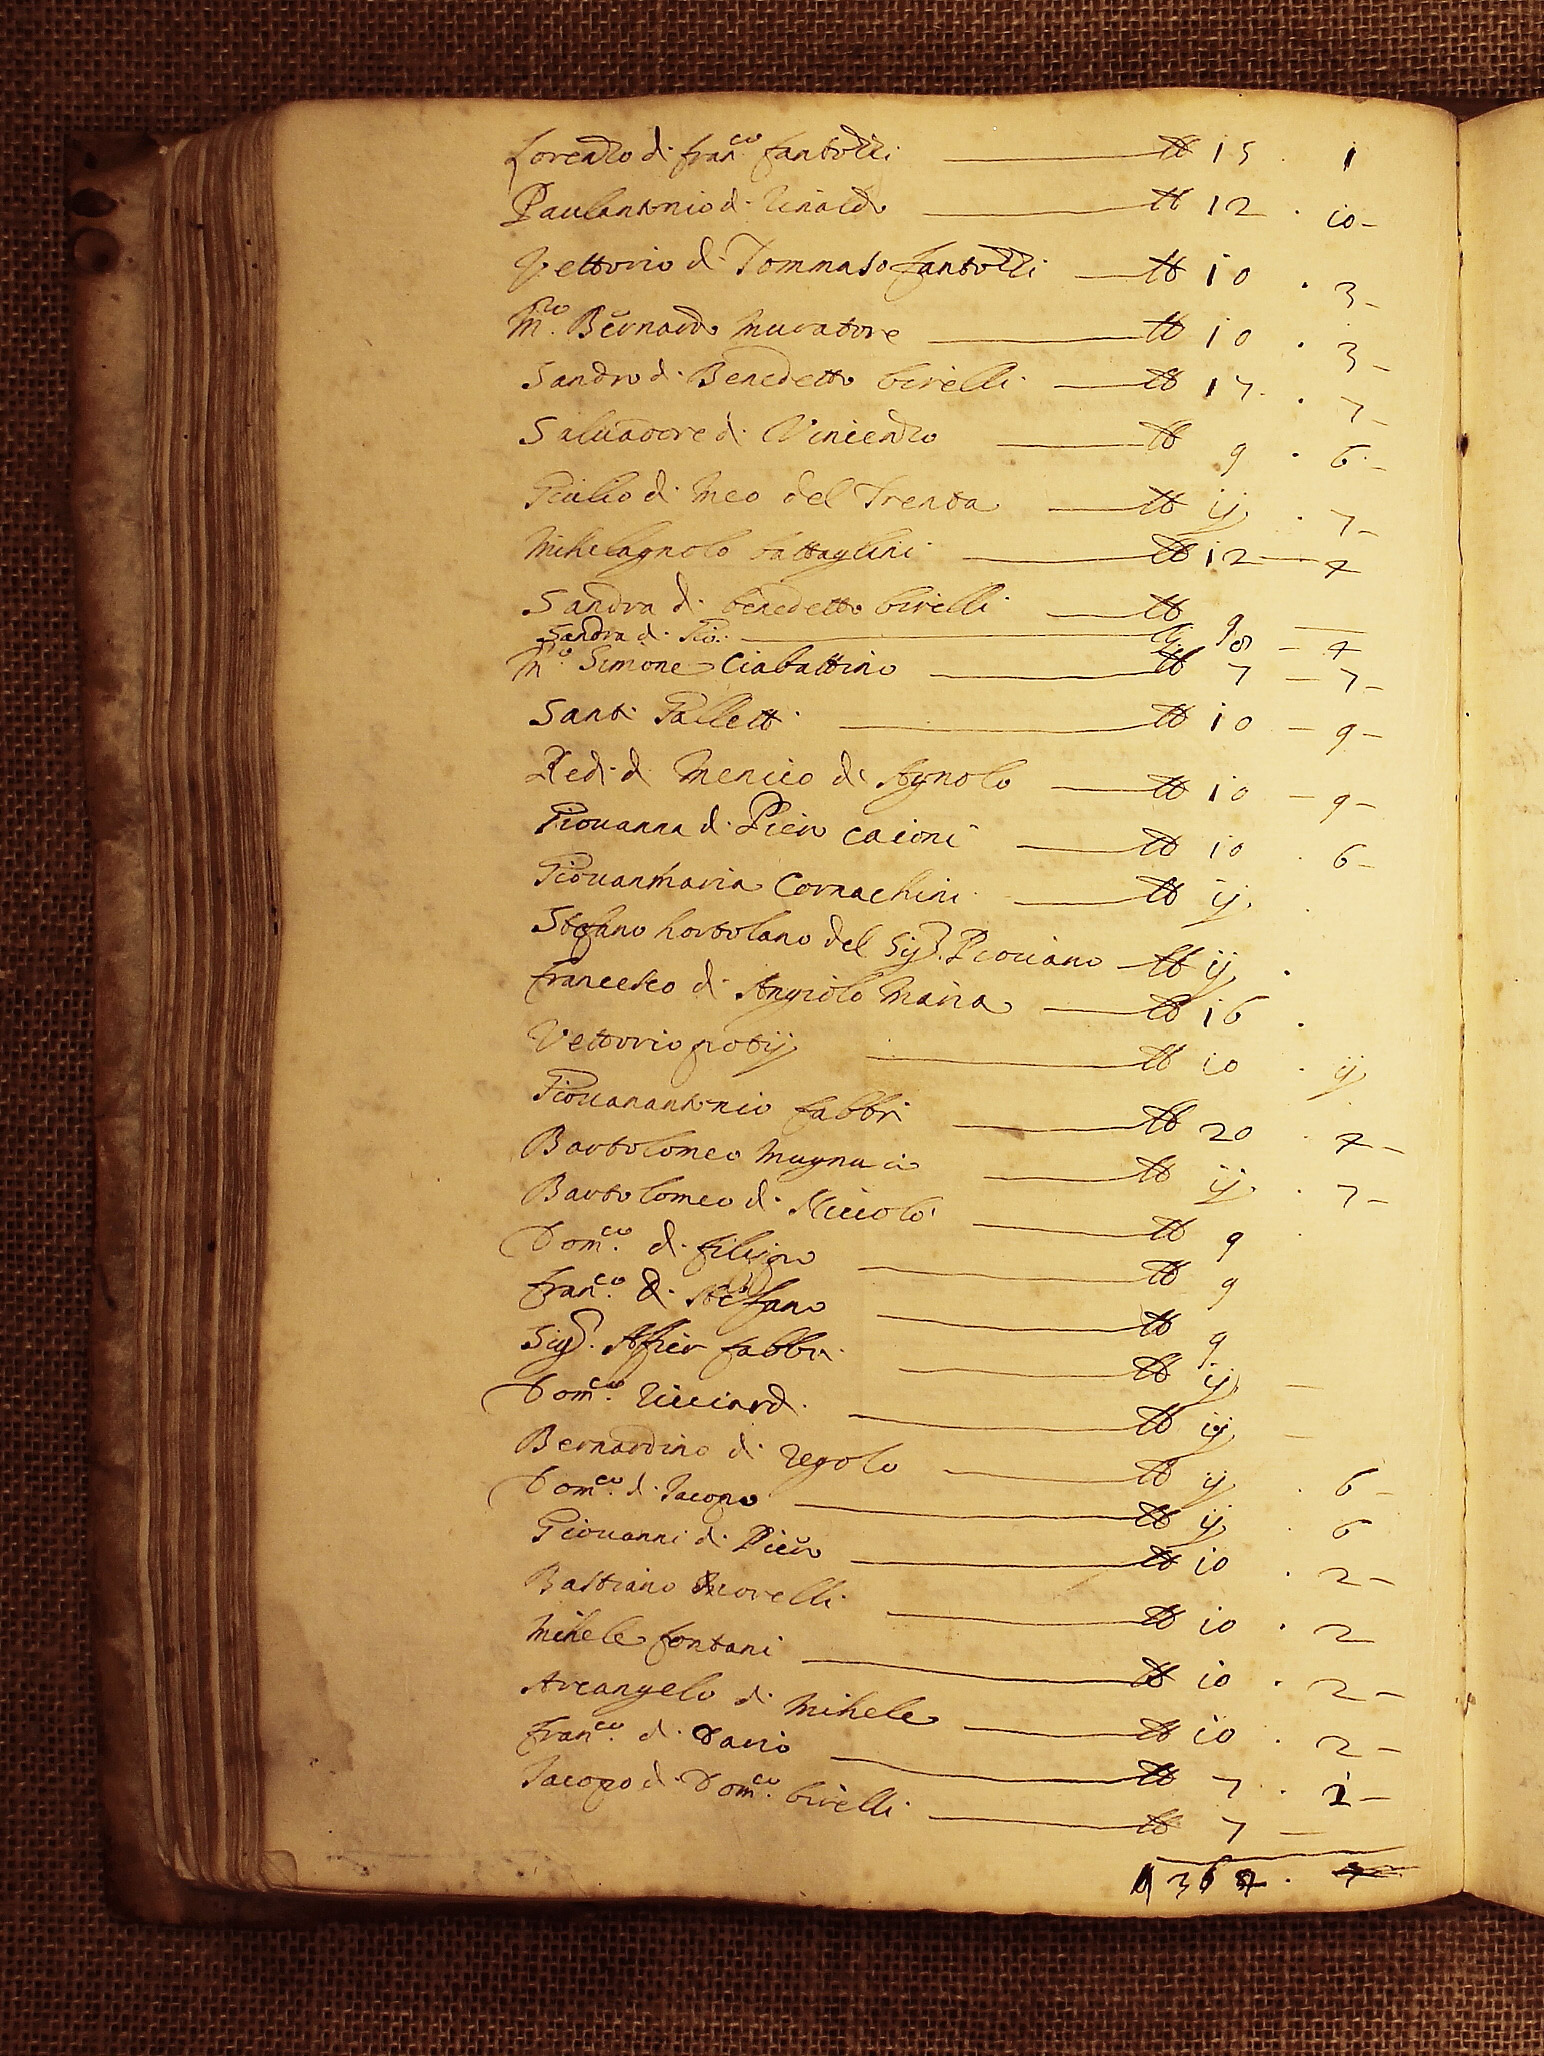 Lorenzo di fran.co fantozzi ℔ 15 . 1
Paulantonio di rinaldo ℔ 12 . io -
Vettorio di Tommaso fantozzi ℔ io . 3 -
M.ro Bernardo muratore ℔ io . 3 -
Sandro di Benedetto birelli ℔ 17 . 7 -
Saluadore di Vincenzo ℔ 9 . 6 -
Giulio di Meo del Trenta ℔ ij . 7 -
Mihelagnolo battaglini ℔ 12 — 4
Sandra di benedetto birelli ℔ 9 —
Sandra di Gio: 8 - 4
M.ro Simone Ciabattino ℔ 7 - 7 -
Santi Galletti ℔ io - 9 -
Redi di Menico di Agnolo ℔ io - 9 -
Giouanna di Piero caioni ℔ io . 6 -
Giouanmaria Cornachini ℔ ij .
Stefano hortolano del Sig.r Piouano ℔ ij .
francesco di Angiolo Maria ℔ i6 .
Vettorio ℔ io . ij
Giouanantonio fabbri ℔ 20 . 4 -
Bartolomeo Magnaci ℔ ij . 7 -
Bartolomeo di Niccolò ℔ 9 .
Dom.co di filippo ℔ 9
fran.co di Stefano ℔ 9
Sig.r Alfier fabbri ℔ ij —
Dom.co ricciardi ℔ ij —
Bernardino di regolo ℔ ij . 6 -
Dom.co di Iacopo ℔ ij . 6
Giouanni di Piero ℔ io . 2 -
Bastiano ℔ io . 2
Mihele fontani ℔ io . 2 -
Arcangelo di Mihele ℔ io . 2 -
fran.co di Dauid ℔ 7 . 2 -
Iacopo di Dom.co birelli ℔ 7 —